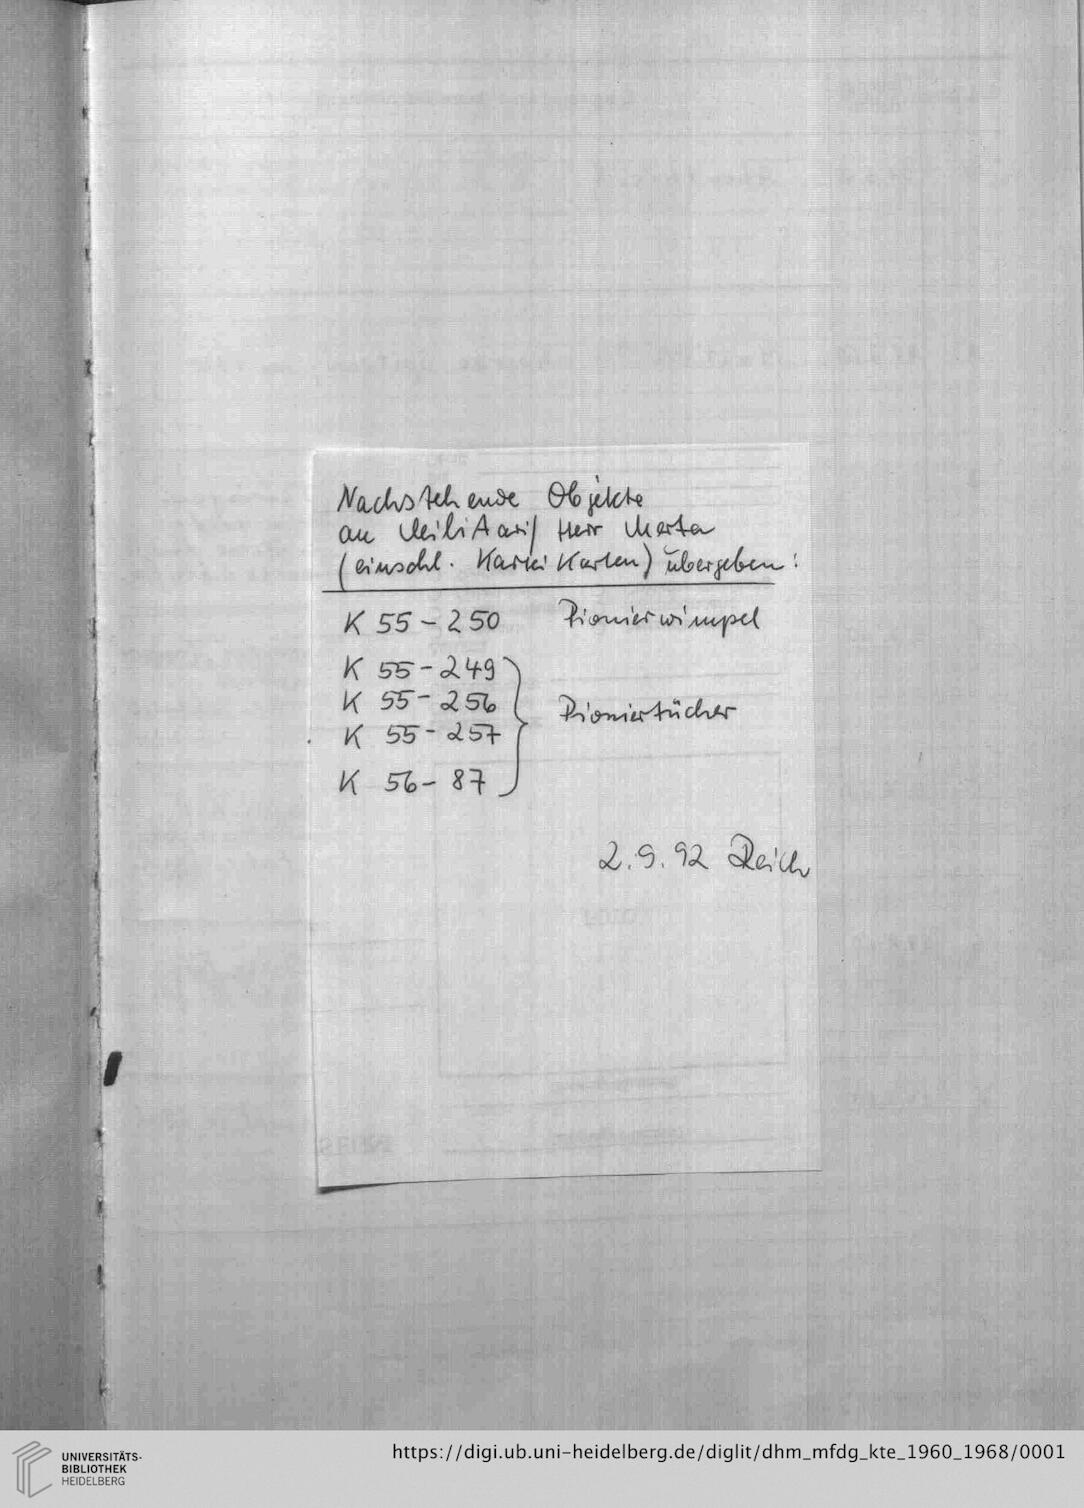 Nachstehende Objekte
an Militaria/ Herr Merta
(einschl. Karteikarten) übergeben:
K 55-250 Pionierwimpel
K 55-249
K 55-256
K 55-257
Pioniertücher
K 56-87
2.9.92 Reich
UNIVERSITÄTS-
BIBLIOTHEK
HEIDELBERG
https://digi.ub.uni-heidelberg.de/diglit/dhm_mfdg_kte_1960_1968/0001